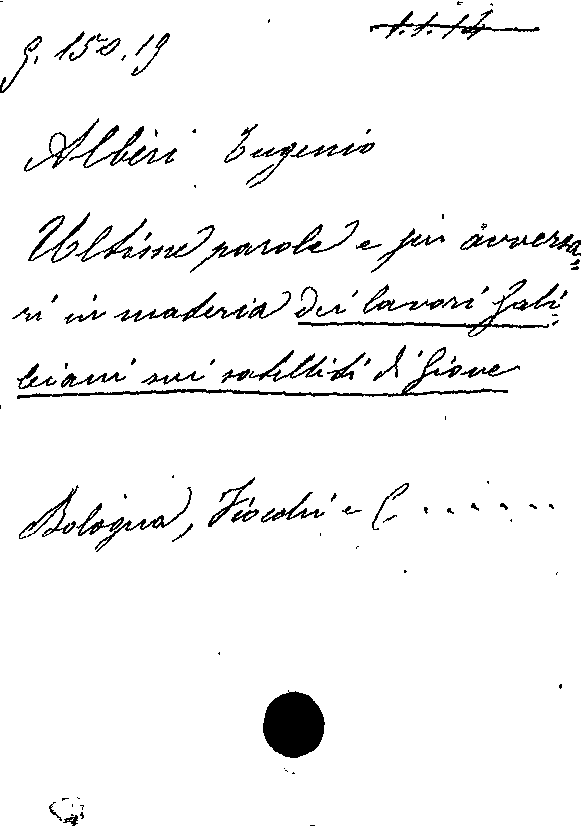 g. 150.19
1.1.14
Albèri Eugenio
Ultime parole e più avversa=
ri in materia dei lavori gali=
leiani sui satelliti di Giove
Bologna, Fiocchi e C......